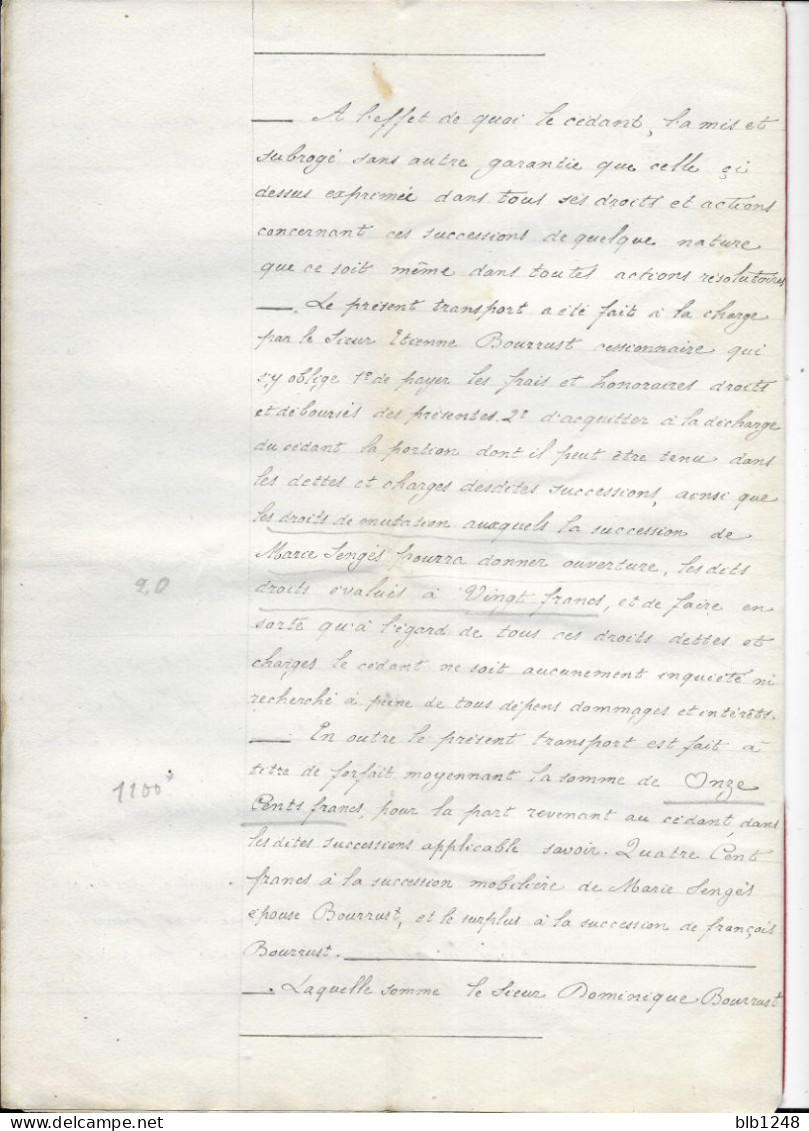 — A l'effet de quoi le cédant, l'a mis et
subrogé sans autre garantie que celle çi
dessus exprimée dans tous ses droits et actions
concernant ces successions de quelque nature
que ce soit même dans toutes actions résolutoires
— Le présent transport a été fait à la charge
par le Sieur Etienne Bourrust cessionnaire qui
s'y oblige 1º de payer les frais et honoraires droits
et déboursés des présentes. 2º d'acquitter à la décharge
du cédant la portion dont il peut être tenu dans
les dettes et charges desdites successions, ainsi que
les droits de mutation auxquels la succession de
Marie Sengés pourra donner ouverture, les dits
20
droits évalués à Vingt francs, et de faire en
sorte qu'à l'égard de tous ces droits dettes et
charges le cédant ne soit aucunement inquiété ni
recherché à peine de tous dépens dommages et intérêts.
— En outre le présent transport est fait à
1100
titre de forfait moyennant la somme de Onze
Cents francs, pour la part revenant au cédant, dans
les dites successions applicable savoir. Quatre Cent
francs à la succession mobilière de Marie Sengés
épouse Bourrust, et le surplus à la succession de françois
Bourrust.
— Laquelle somme le Sieur Dominique Bourrust
blb1248